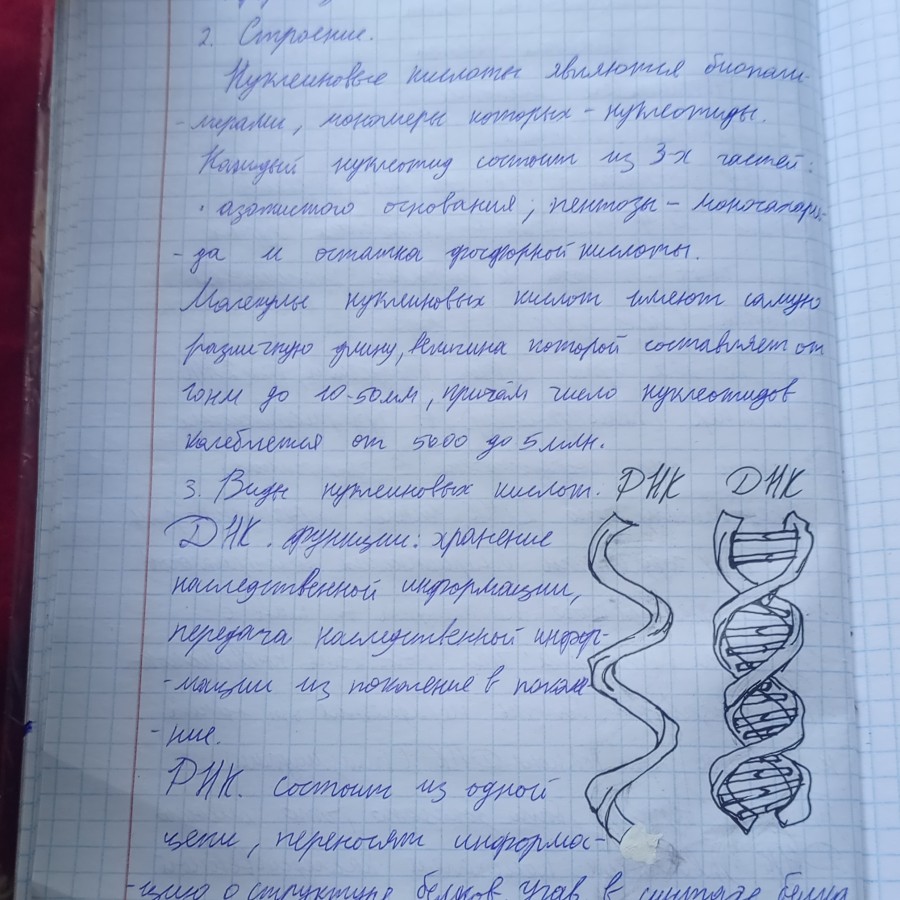 2. Строение.
Нуклеиновые кислоты являются биополи-
-мерами, мономеры которых - нуклеотиды.
Каждый нуклеотид состоит из 3-х частей:
· азотистого основания; пентозы - моносахари-
-да и остатка фосфорной кислоты.
Молекулы нуклеиновых кислот имеют самую
различную длину, величина которой составляет от
до 10-50мм, причём число нуклеотидов
колеблется от 5600 до 5 млн.
3. Виды нуклеиновых кислот. РНК ДНК
ДНК. функции: хранение
наследственной информации,
передача наследственной инфор-
-мации из поколение в поколе-
-ние.
РНК. состоит из одной
цепи, переносят информа-
-цию о структуре белков, в синтезе белка